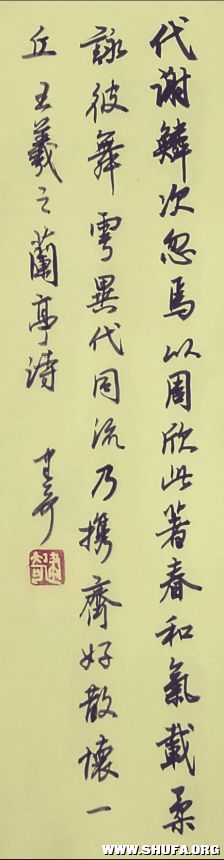 代謝鱗次忽焉以周欣此著春和氣載柔
詠彼舞雩異代同流乃携齊好散懷一
丘 王羲之蘭亭詩
WWW.SHUFA.ORG